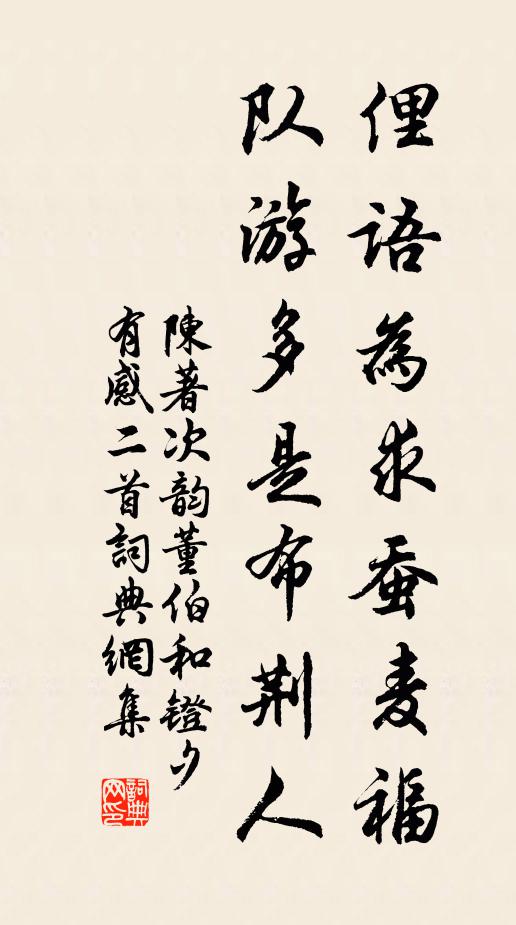 俚語為求蚕麦福
队游多是布荆人
陳著次韵董伯和鐙夕
有感二首詞典網集
詞典
网印